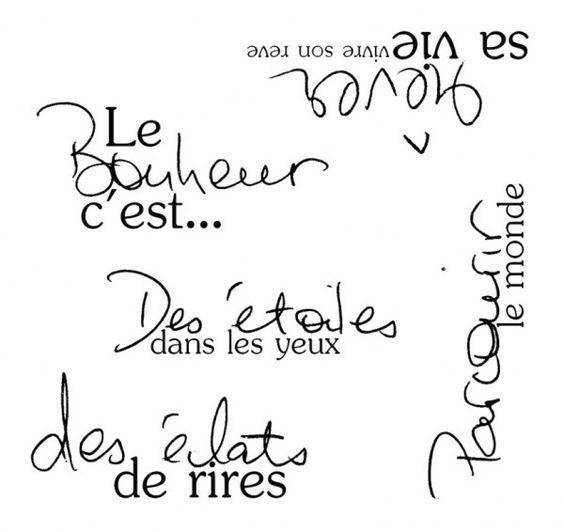 Rêver
sa vie vivre son reve
Le
Bonheur
c'est...
Des étoiles
dans les yeux
Parcourir
le monde
des éclats
de rires